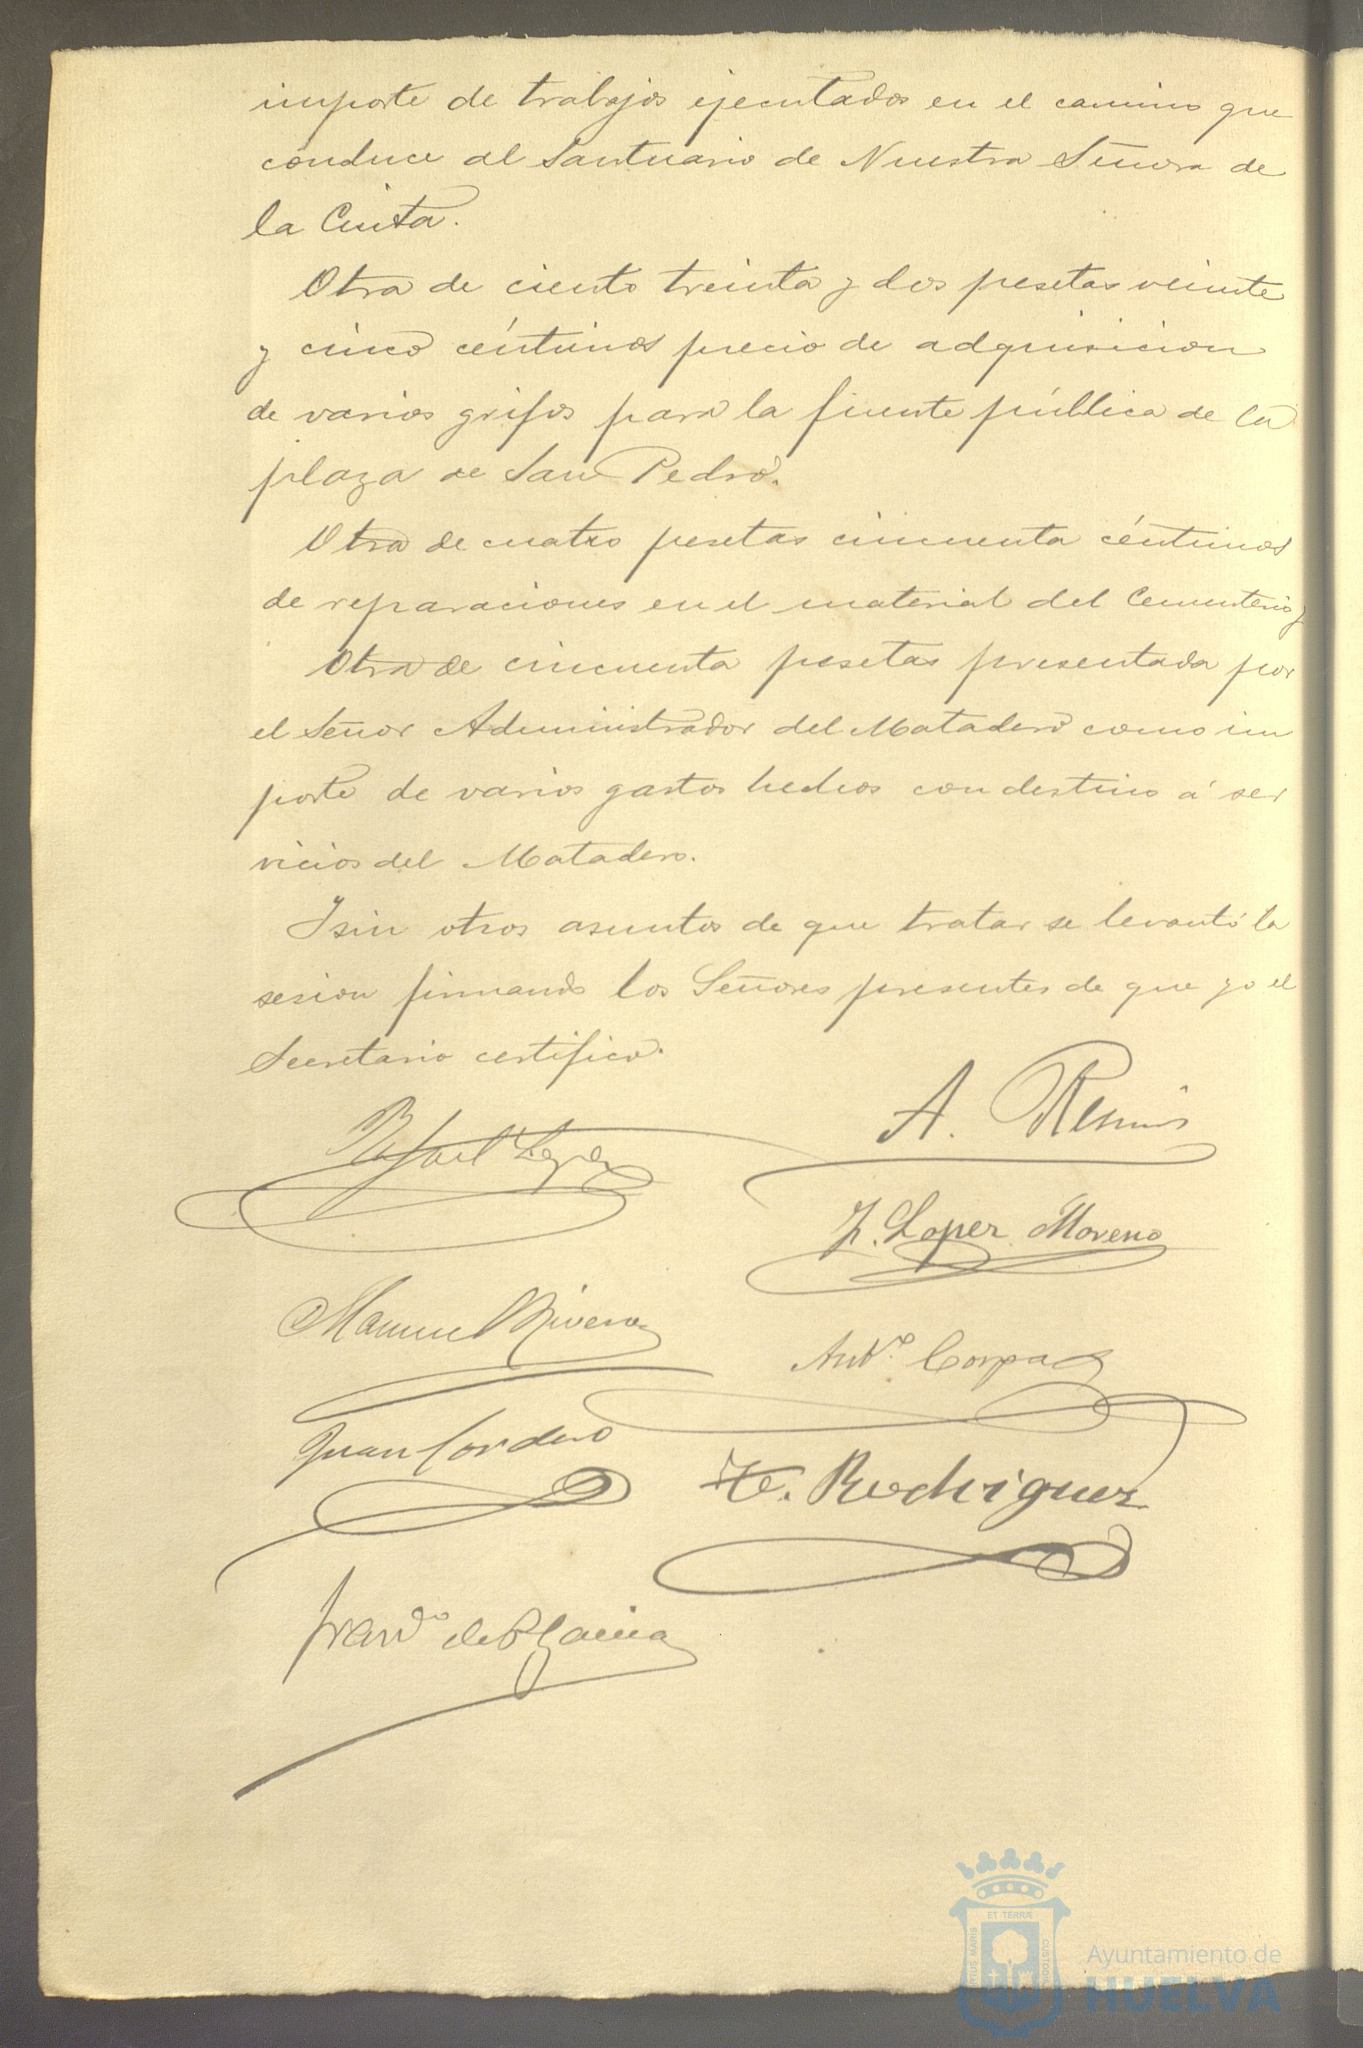 importe de trabajos ejecutados en el camino que
conduce al Santuario de Nuestra Señora de
la Cinta.
Otra de ciento treinta y dos pesetas veinte
y cinco céntimos precio de adquisicion
de varios grifos para la fuente pública de la
plaza de San Pedro.
Otra de cuatro pesetas cincuenta céntimos
de reparaciones en el material del Cementerio y
Otra de cincuenta pesetas presentada por
el Señor Administrador del Matadero como im
porte de varios gastos hechos con destino á ser
vicios del Matadero.
Y sin otros asuntos de que tratar se levantó la
sesion firmando los Señores presentes de que yo el
Secretario certifico.
A.
Rafael Lopez
Lopez Moreno
Manuel Rivera
Antº. Corpas
Juan Cordero
Rodriguez
de P
ET TERRÆ
PORTUS MARIS
CUSTODIA
Ayuntamiento de
HUELVA